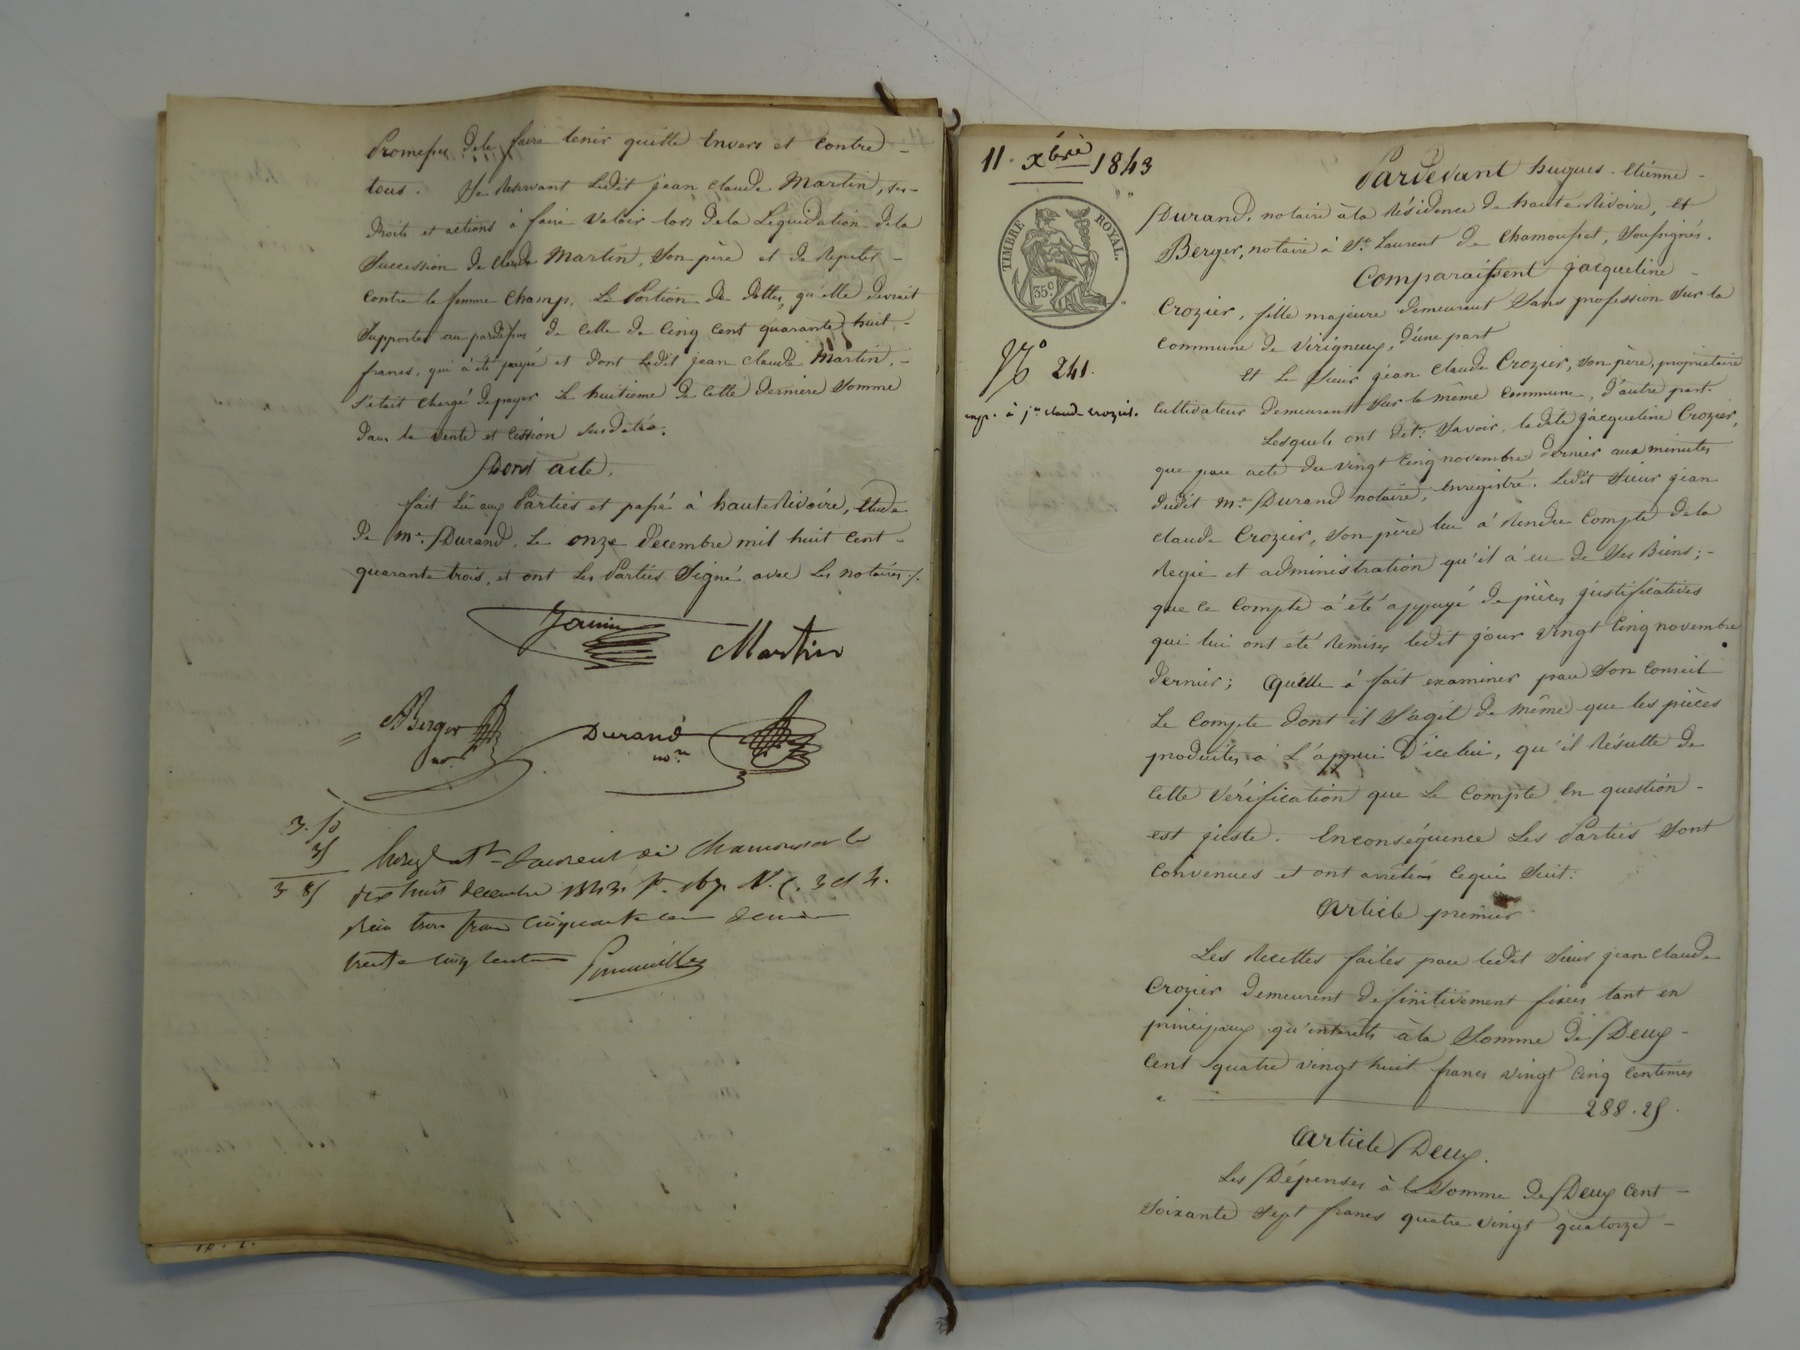 Promesse de le faire tenir quitte envers et contre -
tous. Se reservant ledit jean claude Martin, ses -
droits et actions à faire valoir lors de la Liquidation de la
succession de claude Martin, son père et de repeter -
contre la femme Champ, la Portion de dettes, qu'elle devrait
supporter au pardessus de celle de cinq cent quarante huit -
francs, qui à été payée et dont ledit jean claude Martin, -
s'était chargé de payer le huitieme de cette dernière somme
dans la vente et cession susdatée.
Dont acte,
fait Lu aux Parties et passé à haute Rivoire, Etude
de Me. Durand, le onze decembre mil huit cent -
quarante trois, et ont les Parties signé avec les notaires ./.
Martin
ABerger
no.re
Durand
no.re
3. 50
35
3 85
Enregé à St Laurent de Chamousset le
dix huit decembre 1843. fo. 167. Vo. C. 3 et 4.
Reçu trois francs cinquante cent decime
trente cinq centimes
11. Xbre 1843
TIMBRE ROYAL.
35c
No 241.
exp. à jn claude Crozier.
Pardevant hugues - Etienne -
Durand, notaire à la Résidence de haute Rivoire, et
Berger, notaire à St. Laurent de Chamousset, soussignés.
Comparaissent jacqueline -
Crozier, fille majeure demeurant sans profession sur la
commune de Virigneux, d'une part
Et le sieur jean Claude Crozier, son père, propriétaire
cultivateur demeurant sur la même commune, d'autre part.
Lesquels ont dit: savoir, ladite jacqueline Crozier,
que par acte du vingt cinq novembre dernier aux minutes
dudit Me. Durand notaire, enregistré. Ledit sieur jean
claude Crozier, son père lui à rendu compte de la
regie et administration qu'il à eu de ses Biens; -
que ce compte à été appuyé de pièces justificatives
qui lui ont été remises ledit jour vingt cinq novembre
dernier; Qu'elle à fait examiner par son conseil
le compte dont il s'agit de même que les pièces
produites à L'appui D'icelui, qu'il résulte de
cette vérification que le compte en question -
est juste. Enconséquence les Parties sont
convenues et ont arrêtés cequi suit:
Article premier
Les Recettes faites par ledit sieur jean claude
Crozier demeurent definitivement fixées tant en
principaux qu'interets à la somme de Deux -
cent quatre vingt huit francs vingt cinq centimes
288.25.
Article Deux.
Les Dépenses à la somme de Deux cent -
soixante sept francs quatre vingt quatorze -